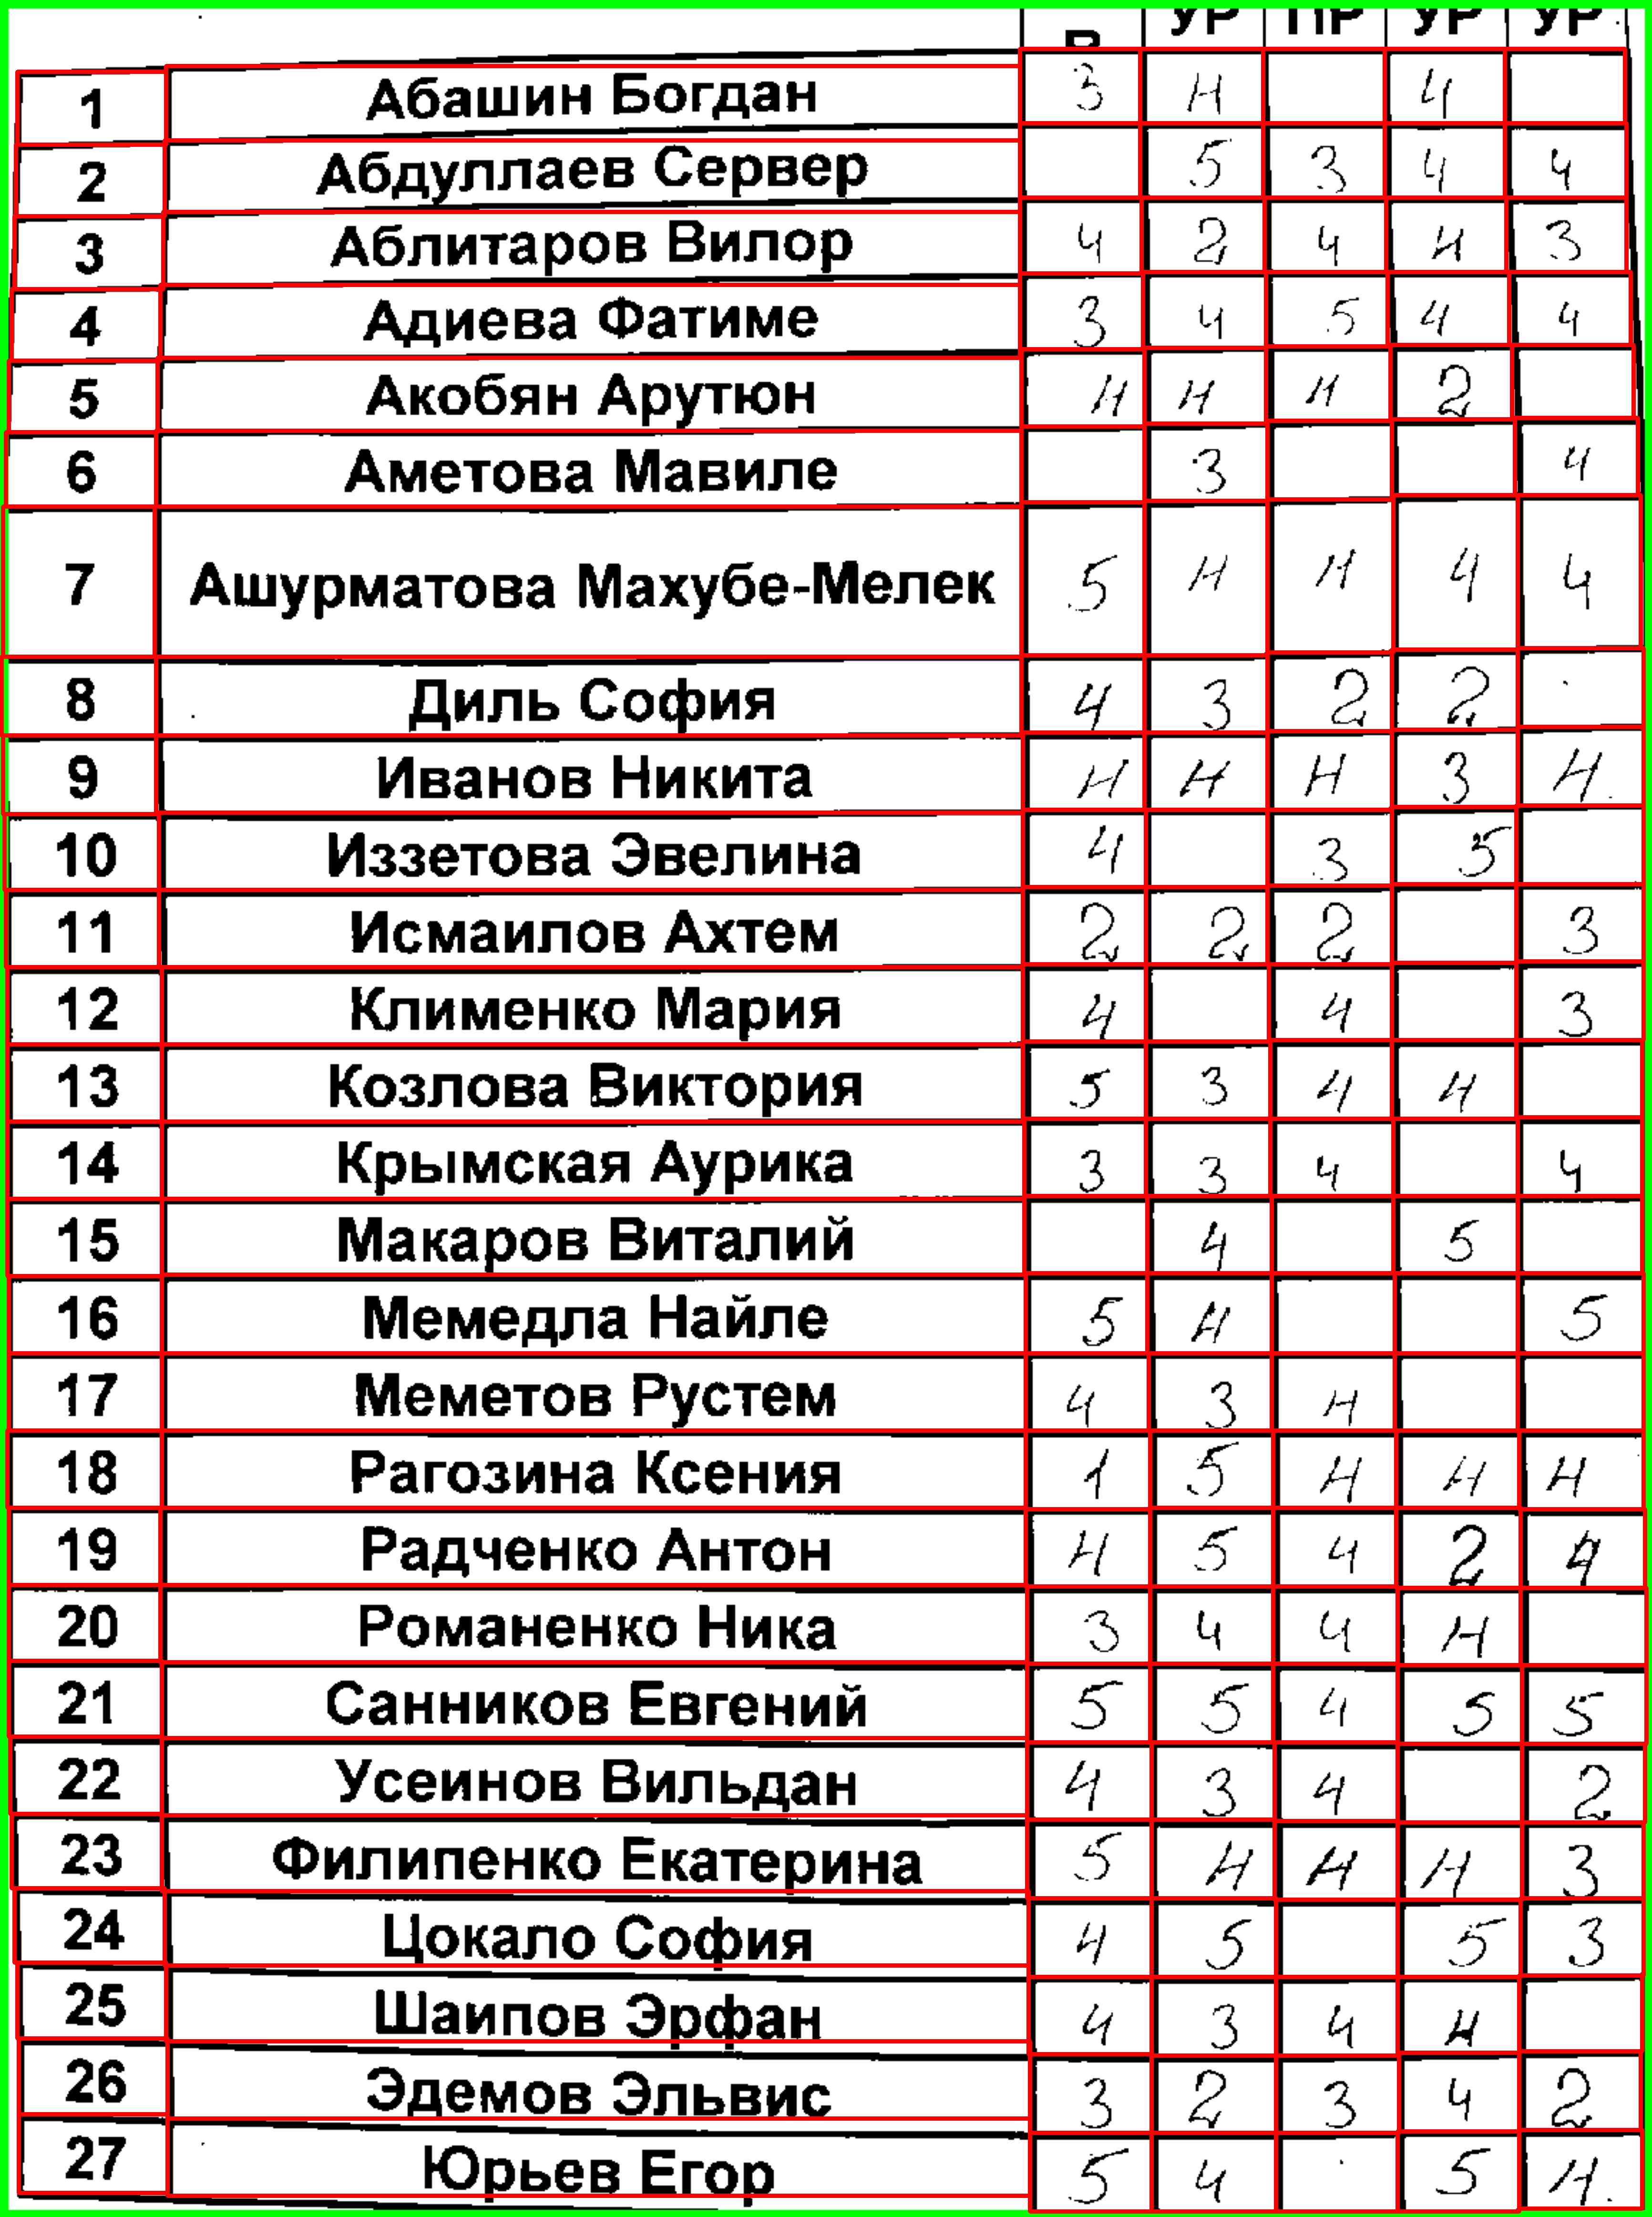 В УР ПР УР УР
1 Абашин Богдан 3 Н 4
2 Абдуллаев Сервер 5 3 4 4
3 Аблитаров Вилор 4 2 4 Н 3
4 Адиева Фатиме 3 4 5 4 4
5 Акобян Арутюн Н Н Н 2
6 Аметова Мавиле 3 4
7 Ашурматова Махубе-Мелек 5 Н Н 4 4
8 Диль София 4 3 2 2
9 Иванов Никита Н Н Н 3 Н
10 Иззетова Эвелина 4 3 5
11 Исмаилов Ахтем 2 2 2 3
12 Клименко Мария 4 4 3
13 Козлова Виктория 5 3 4 Н
14 Крымская Аурика 3 3 4 4
15 Макаров Виталий 4 5
16 Мемедла Найле 5 Н 5
17 Меметов Рустем 4 3 Н
18 Рагозина Ксения 1 5 Н Н Н
19 Радченко Антон Н 5 4 2 4
20 Романенко Ника 3 4 4 Н
21 Санников Евгений 5 5 4 5 5
22 Усеинов Вильдан 4 3 4 2
23 Филипенко Екатерина 5 Н Н Н 3
24 Цокало София 4 5 5 3
25 Шаипов Эрфан 4 3 4 Н
26 Эдемов Эльвис 3 2 3 4 2
27 Юрьев Егор 5 4 5 Н